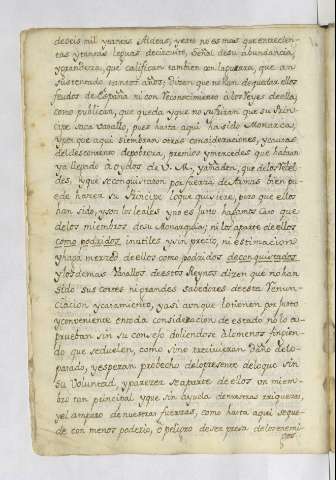 de seis mil y tantas Aldeas, y esto no es mas que entre cien-
tas y tantas leguas de circuito, Señal de su abundancia,
y grandeza, que califican tambien con la guerra, que an
sustentado tantos años; Dizen que no han de quedar ellos
feudos de España ni con Reconocimiento à los Reyes de ella,
como publican, que queda y que no sufriran que su Prin-
cipe sea Vasallo, pues hasta aqui ha sido Monarca,
y por que aqui siembran otras consideraciones, y causas
del descontento de pobreza, premios y mercedes que habran
ya llegado à oydos de V. M., y añaden, que de los Rebel-
des, y que se conquistaron por fuerza de Armas bien pu-
ede hazer su Principe lo que quisiere, pero que ellos
han sido, y son los leales y no es justo hagamos caso que
de los miembros de su Monarquia; ni los aparte de ellos
como podridos inutiles y sin precio, ni estimacion
y haga merced de ellos como podridos de conquistados
y los demas Vasallos de estos Reynos dizen que no han
sido sus Cortes ni grandes sabedores de esta Renun-
ciacion y casamiento, y asi aunque lo tienen por justo
y conveniente en toda consideracion de estado no lo a-
prueban sin su consejo doliendose à lo menos fingien-
do que se duelen, como si no recivieran daño de lo
pasado, y esperan probecho de lo presente de la que sin
su Voluntad, y parezer se aparte de ellos un miem-
bro tan principal y que sin ayuda de nuestras riquezas,
y el amparo de nuestras fuerzas, como hasta aqui se que-
de con menos poderio, ô peligro de ser presa de los enemi-
gos